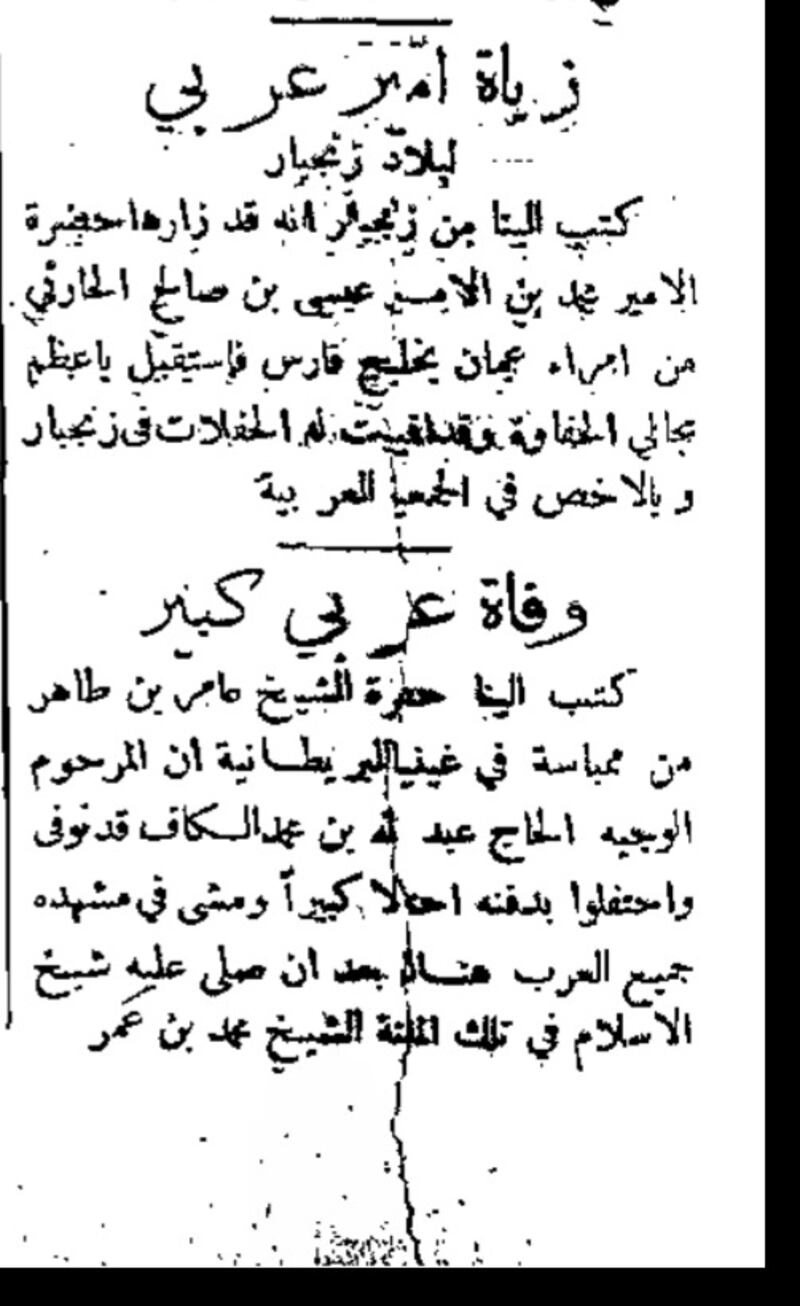 زياة أمير عربي
لبلاد زنجبار
كتب الينا من زنجبار انه قد زارها حضرة
الامير بن الامير عيسى بن صالح الحارثي
من امراء عمان بخليج فارس فاستقبل باعظم
مجالي الحفاوة وقد اقيمت له الحفلات في زنجبار
وبالاخص في الجمعية العربية
وفاة عربي كبير
كتب الينا حضرة الشيخ عامر بن طاهر
من ممباسة في البريطانية ان المرحوم
الوجيه الحاج عبد الله بن محمد السكاف قد توفى
واحتفلوا بدفنه كبيراً ومشى في مشهده
جميع العرب هناك بعد ان صلى عليه شيخ
الاسلام في تلك الشيخ محمد بن عمر